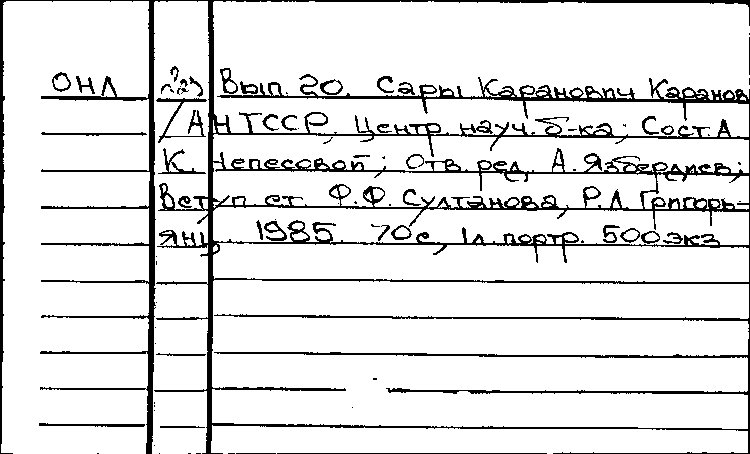 ОНЛ Вып. 20. Сары Каранович Каранов
/АН ТССР, Центр. науч. б-ка; Сост. А.
К. Непесовой; Отв. ред. А. Язбердиев;
Вступ. ст. Ф.Ф. Султанова, Р.Л. Григорь-
янц. 1985. 70с, 1л. портр. 500экз